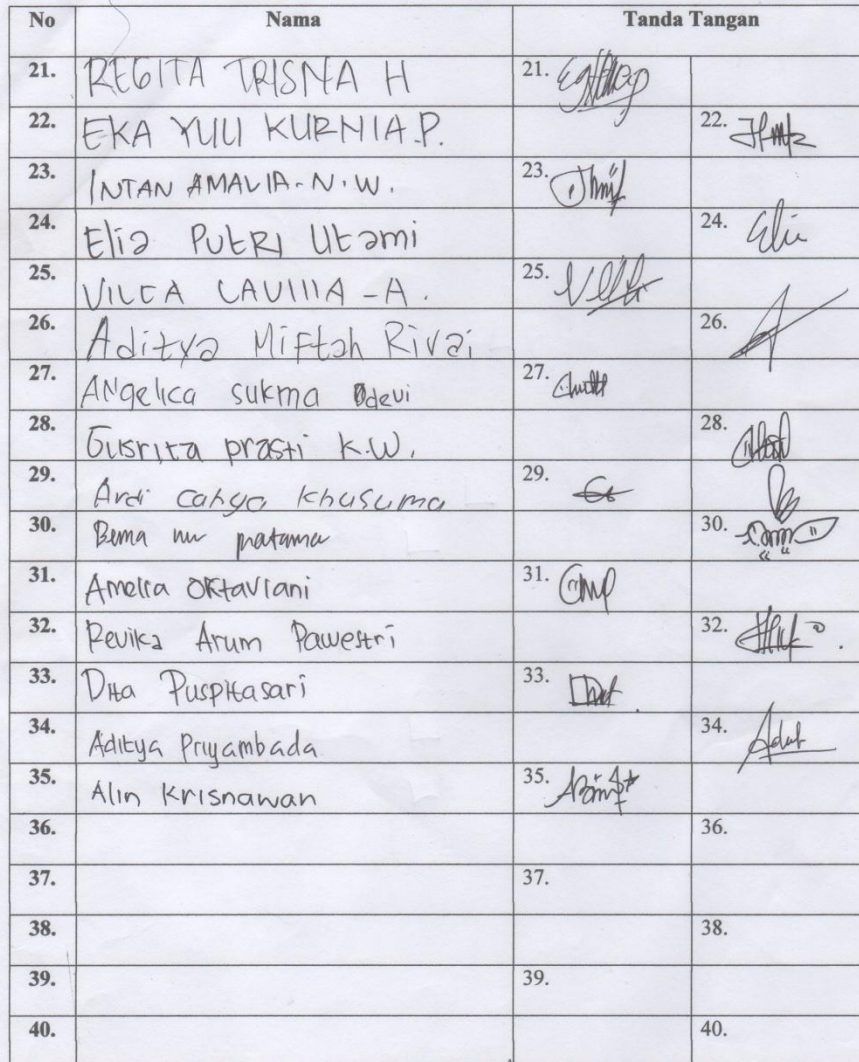 No Nama Tanda Tangan
21. REGITA TRISNA H 21.
22. EKA YULI KURNIA.P. 22.
23. INTAN AMALIA.N.W. 23.
24. Elia PUtRI Utami 24.
25. 25.
26. Aditya Miftah Rivai 26.
27. Angelica sukma devi 27.
28. Gusrita prasti K.W. 28.
29. Ardi cahya khusuma 29.
30. Bema nur pratama 30.
31. Amelia Oktaviani 31.
32. Revika Arum Pawestri 32.
33. Dita Puspitasari 33.
34. Aditya Priyambada 34.
35. Alin Krisnawan 35.
36. 36.
37. 37.
38. 38.
39. 39.
40. 40.